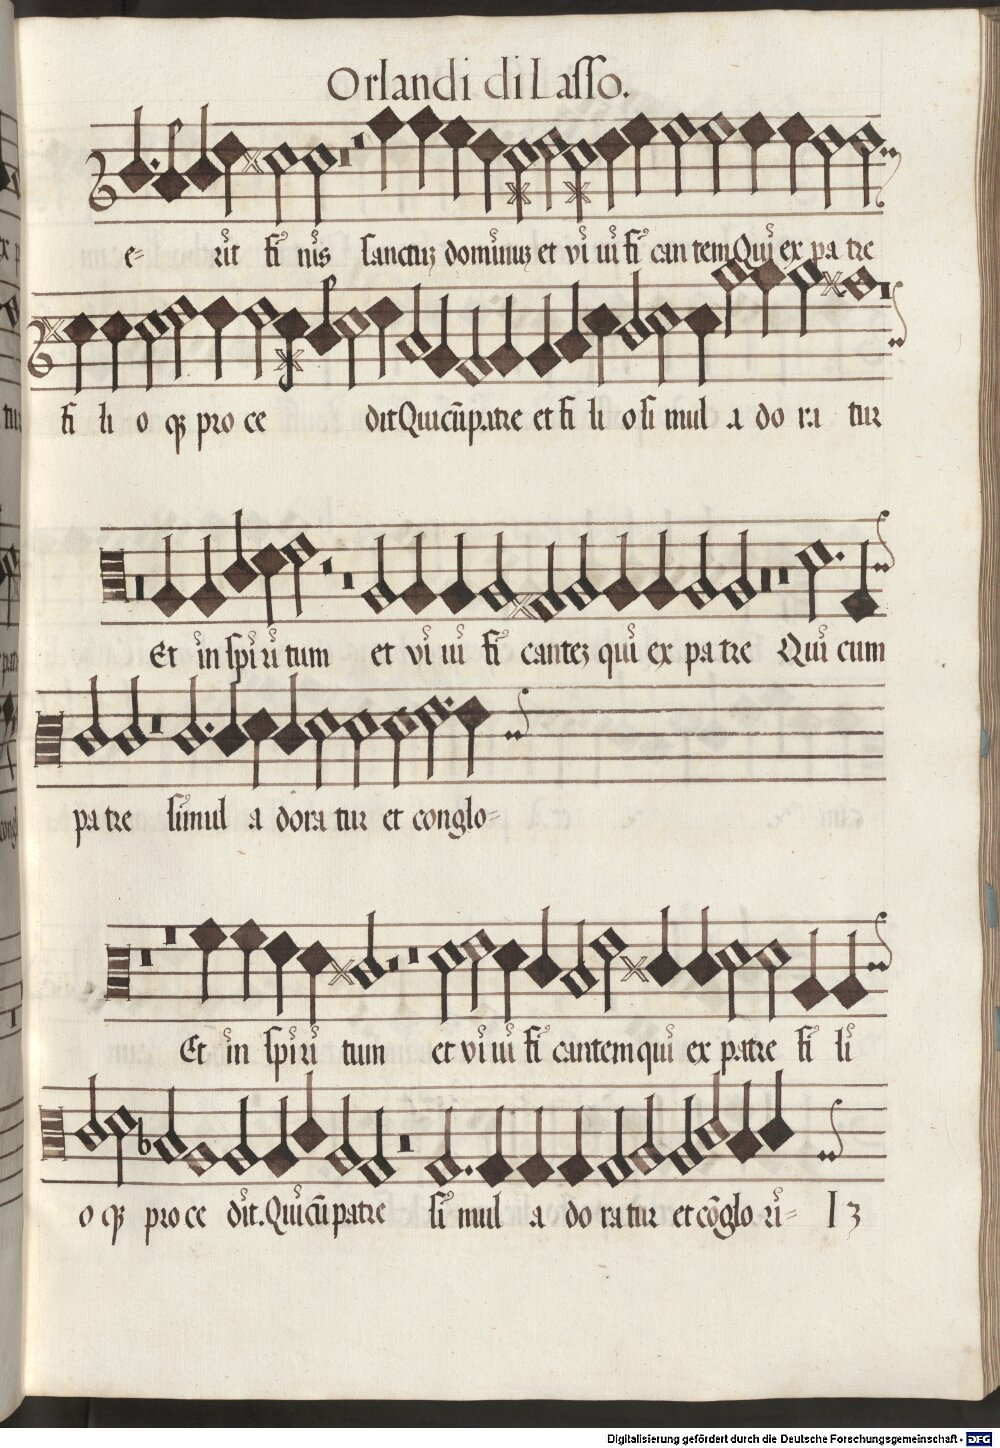 Orlandi di Lasso.
e- rit fi nis sanctus dominus et vi ui fi can tem Qui ex pa tre
fi li o q3 pro ce dit Qui cū patre et fi li o si mul a do ra tur
Et in spi ri tum et vi ui fi cantez qui ex pa tre Qui cum
pa tre simul a dora tur et conglo-
Et in spi ri tum et vi ui fi cantem qui ex patre fi li
o q3 pro ce dit. Qui cū patre si mul a do ra tur et cōglo ri- I 3
Digitalisierung gefördert durch die Deutsche Forschungsgemeinschaft - DFG